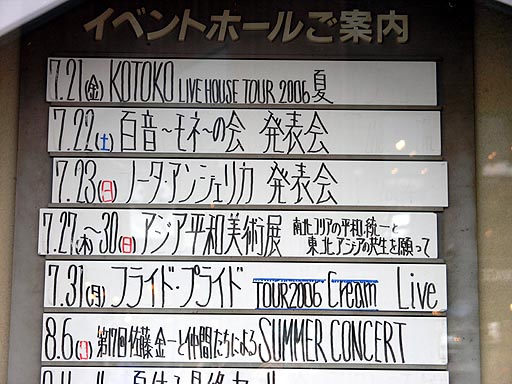 イベントホールご案内
7.21(金) KOTOKO LIVE HOUSE TOUR 2006 夏
7.22(土) 百音〜モネ〜の会 発表会
7.23(日) ノータ・アンジェリカ 発表会
7.27(木)〜30(日) アジア平和美術展 南北コリアの平和統一と
東北アジアの共生を願って
7.31(月) フライド・プライド TOUR2006 Cream Live
8.6(日) 第17回佐藤金一と仲間たちによるSUMMER CONCERT